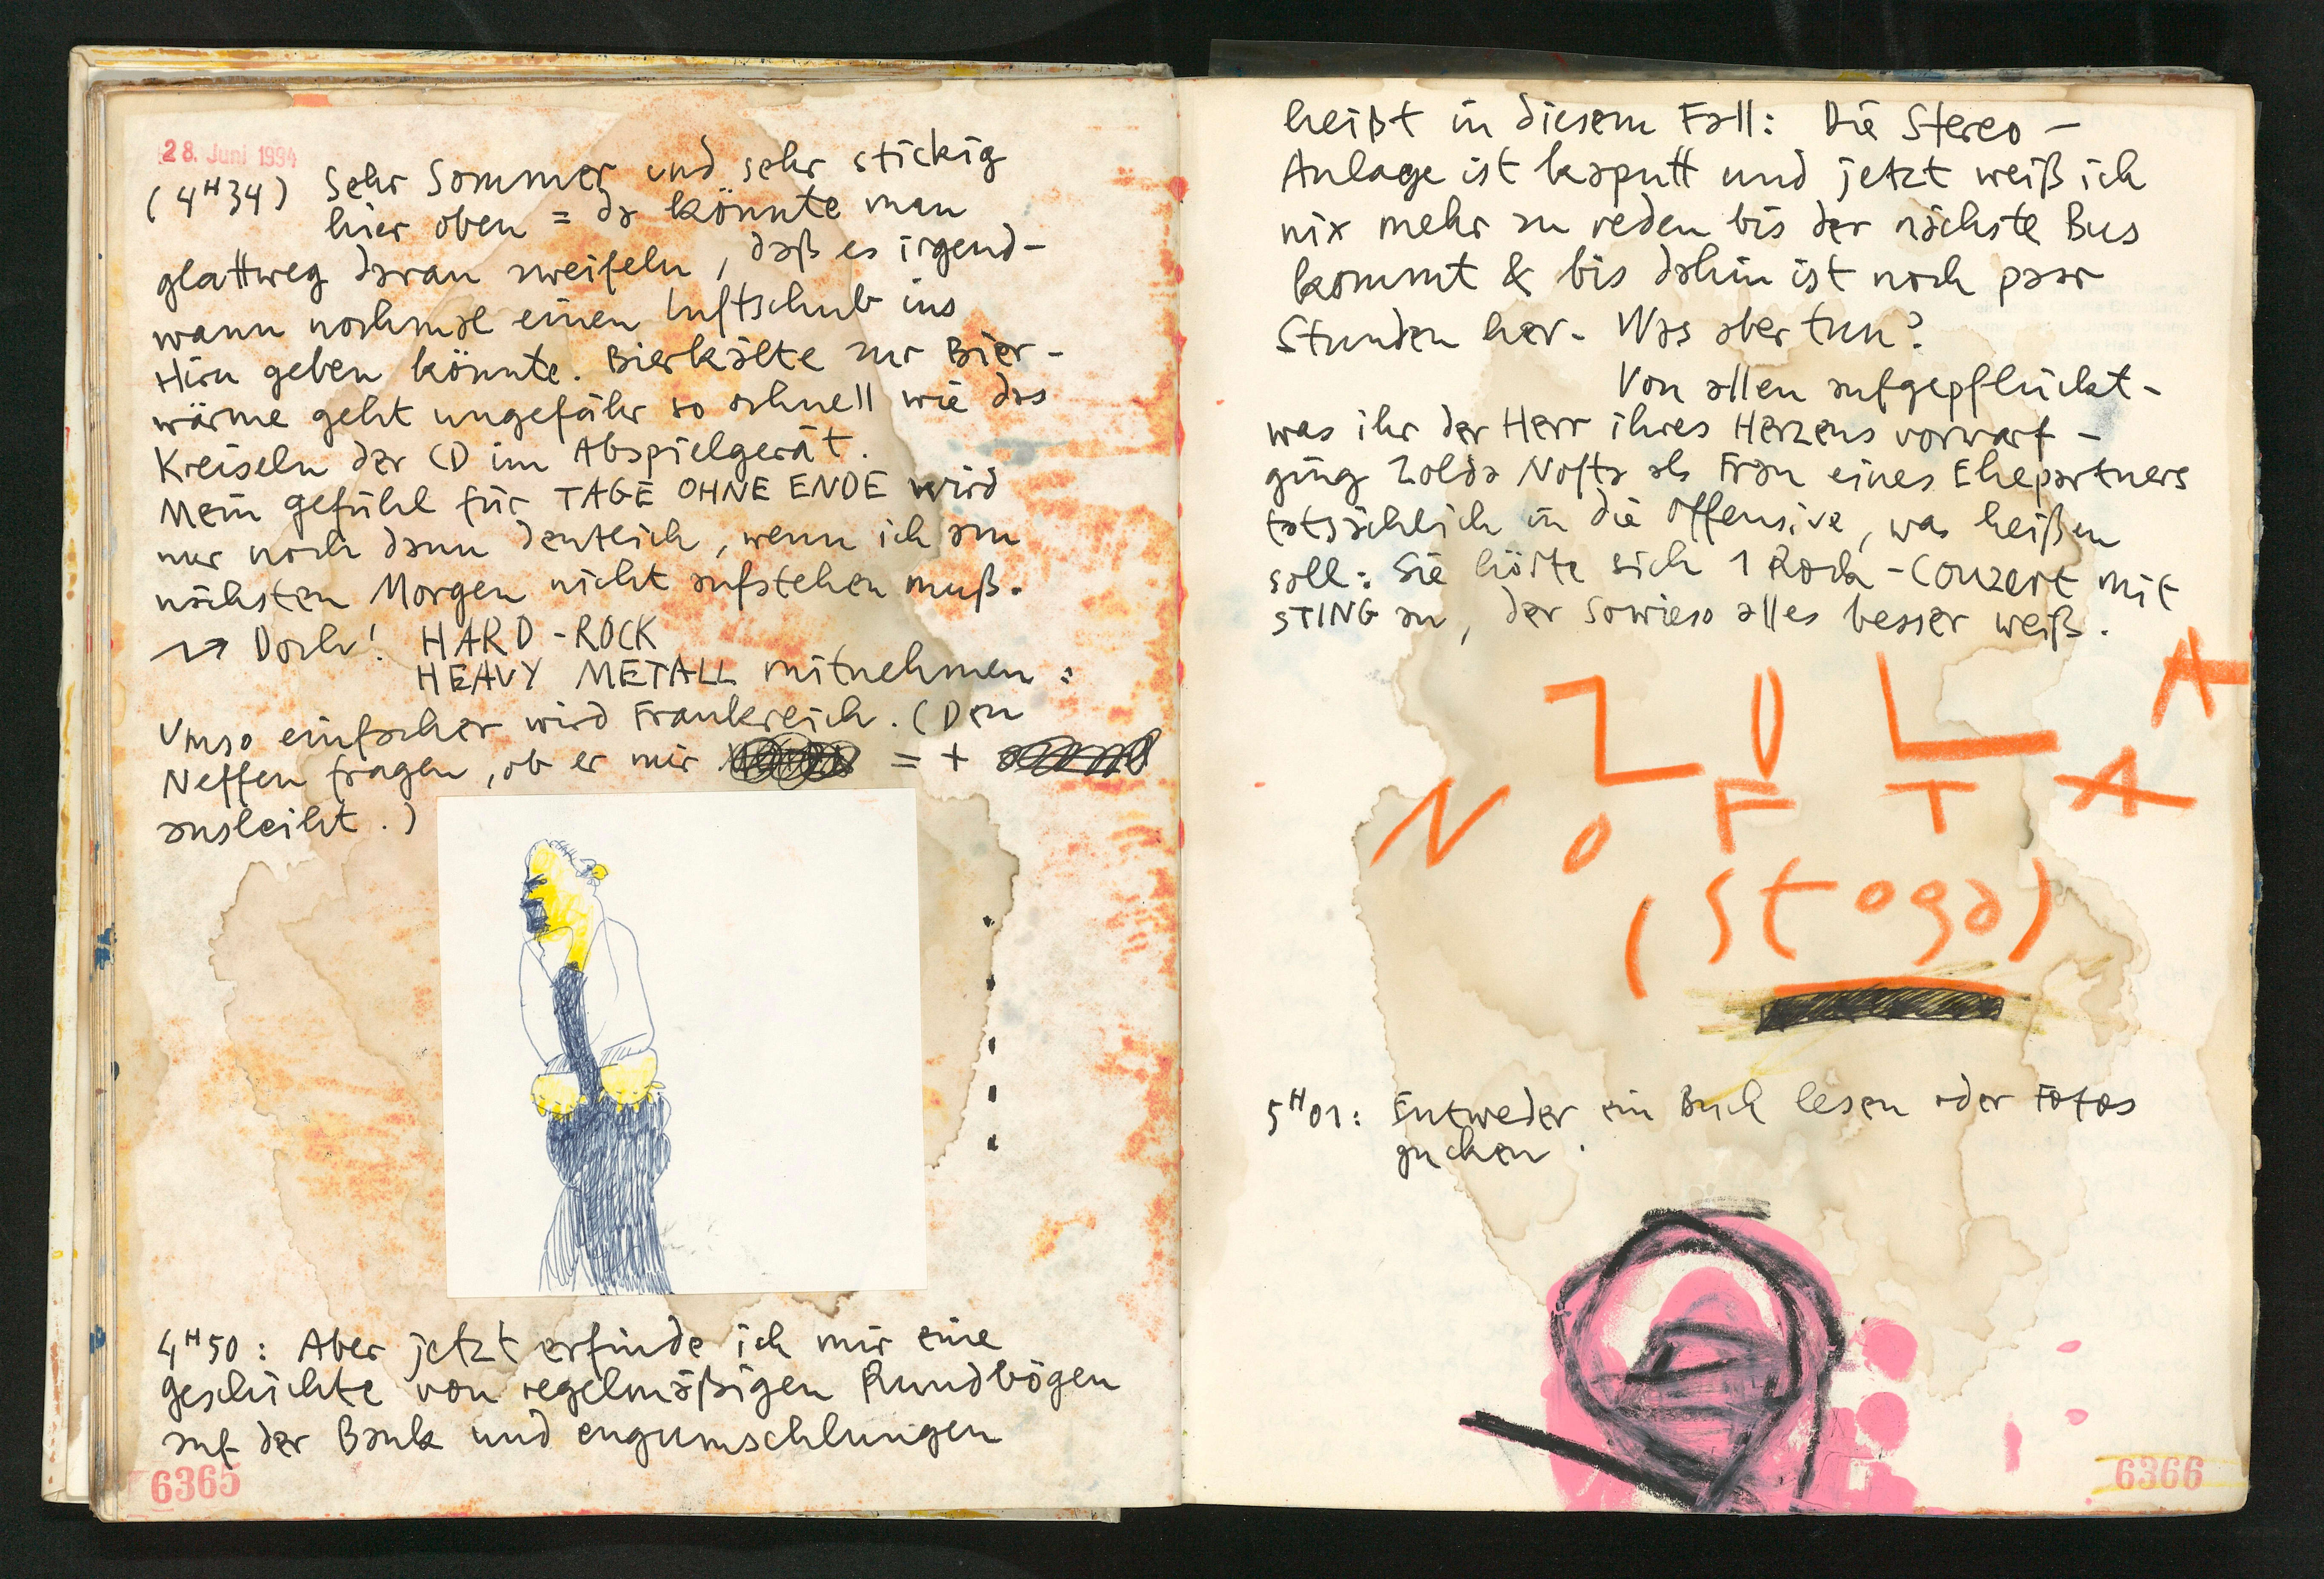 28. Juni 1994
(4H34) Sehr Sommer und sehr stickig
hier oben = da könnte man
glattweg daran zweifeln, daß es irgend-
wann nochmal einen Luftschub ins
Hirn geben könnte. Bierkälte zur Bier-
wärme geht ungefähr so schnell wie das
Kreiseln der CD im Abspielgerät.
Mein Gefühl für TAGE OHNE ENDE wird
nur noch dann deutlich, wenn ich am
nächsten Morgen nicht aufstehen muß.
→ Doch! HARD-ROCK
HEAVY METALL mitnehmen:
Umso einfacher wird Frankreich. (Den
Neffen fragen, ob er mir = +
ausleiht.)
4H50: Aber jetzt erfinde ich mir eine
Geschichte von regelmäßigen Rundbögen
auf der Bank und engumschlungen
6365
heißt in diesem Fall: Die Stereo-
Anlage ist kaputt und jetzt weiß ich
nix mehr zu reden bis der nächste Bus
kommt & bis dahin ist noch paar
Stunden her. Was aber tun?
Von allen aufgepflückt -
was ihr der Herr ihres Herzens vorwarf -
ging Zolda Nofta als Frau eines Ehepartners
tatsächlich in die Offensive, was heißen
soll: Sie hörte sich 1 Rock-Conzert mit
STING an, der sowieso alles besser weiß.
Z O L A
N O F T A
(stoga)
5H01: Entweder ein Buch lesen oder Fotos
gucken.
6366